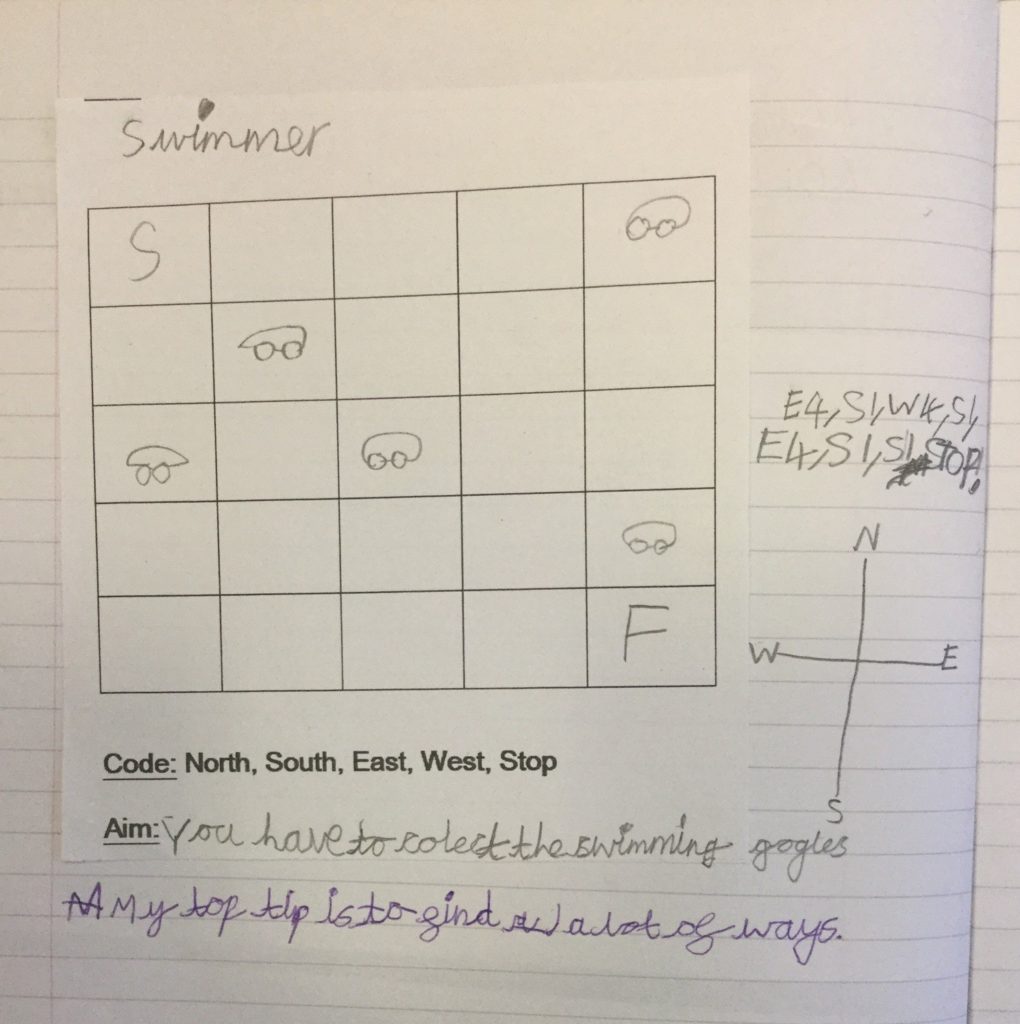 Swimmer
S
F
E4, S1, W4, S1,
E4, S1, S1, STOP!
N
W E
S
Code: North, South, East, West, Stop
Aim: You have to colect the swimming gogles
My top tip is to find a lot of ways.